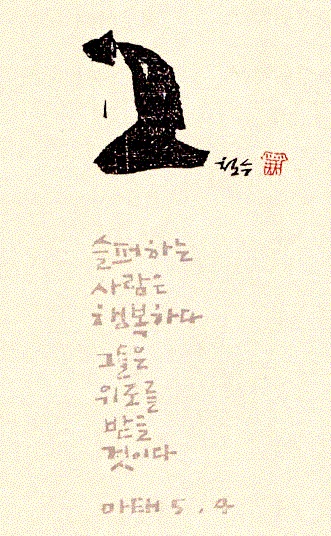 철수
슬퍼하는
사람은
행복하다
그들은
위로를
받을
것이다
마태 5.4